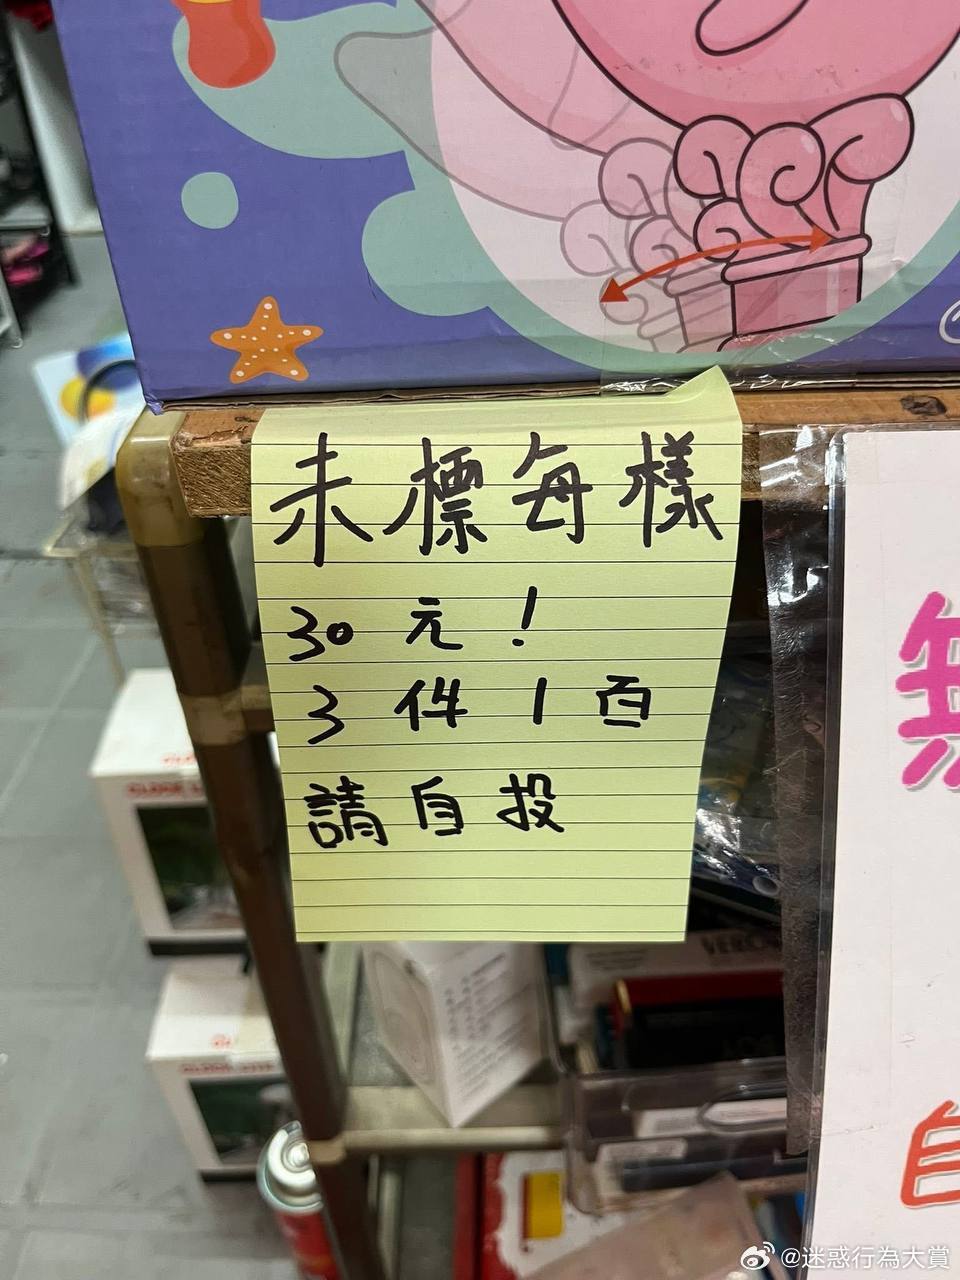 未標每樣
30元!
3件1百
請自投
@迷惑行為大賞